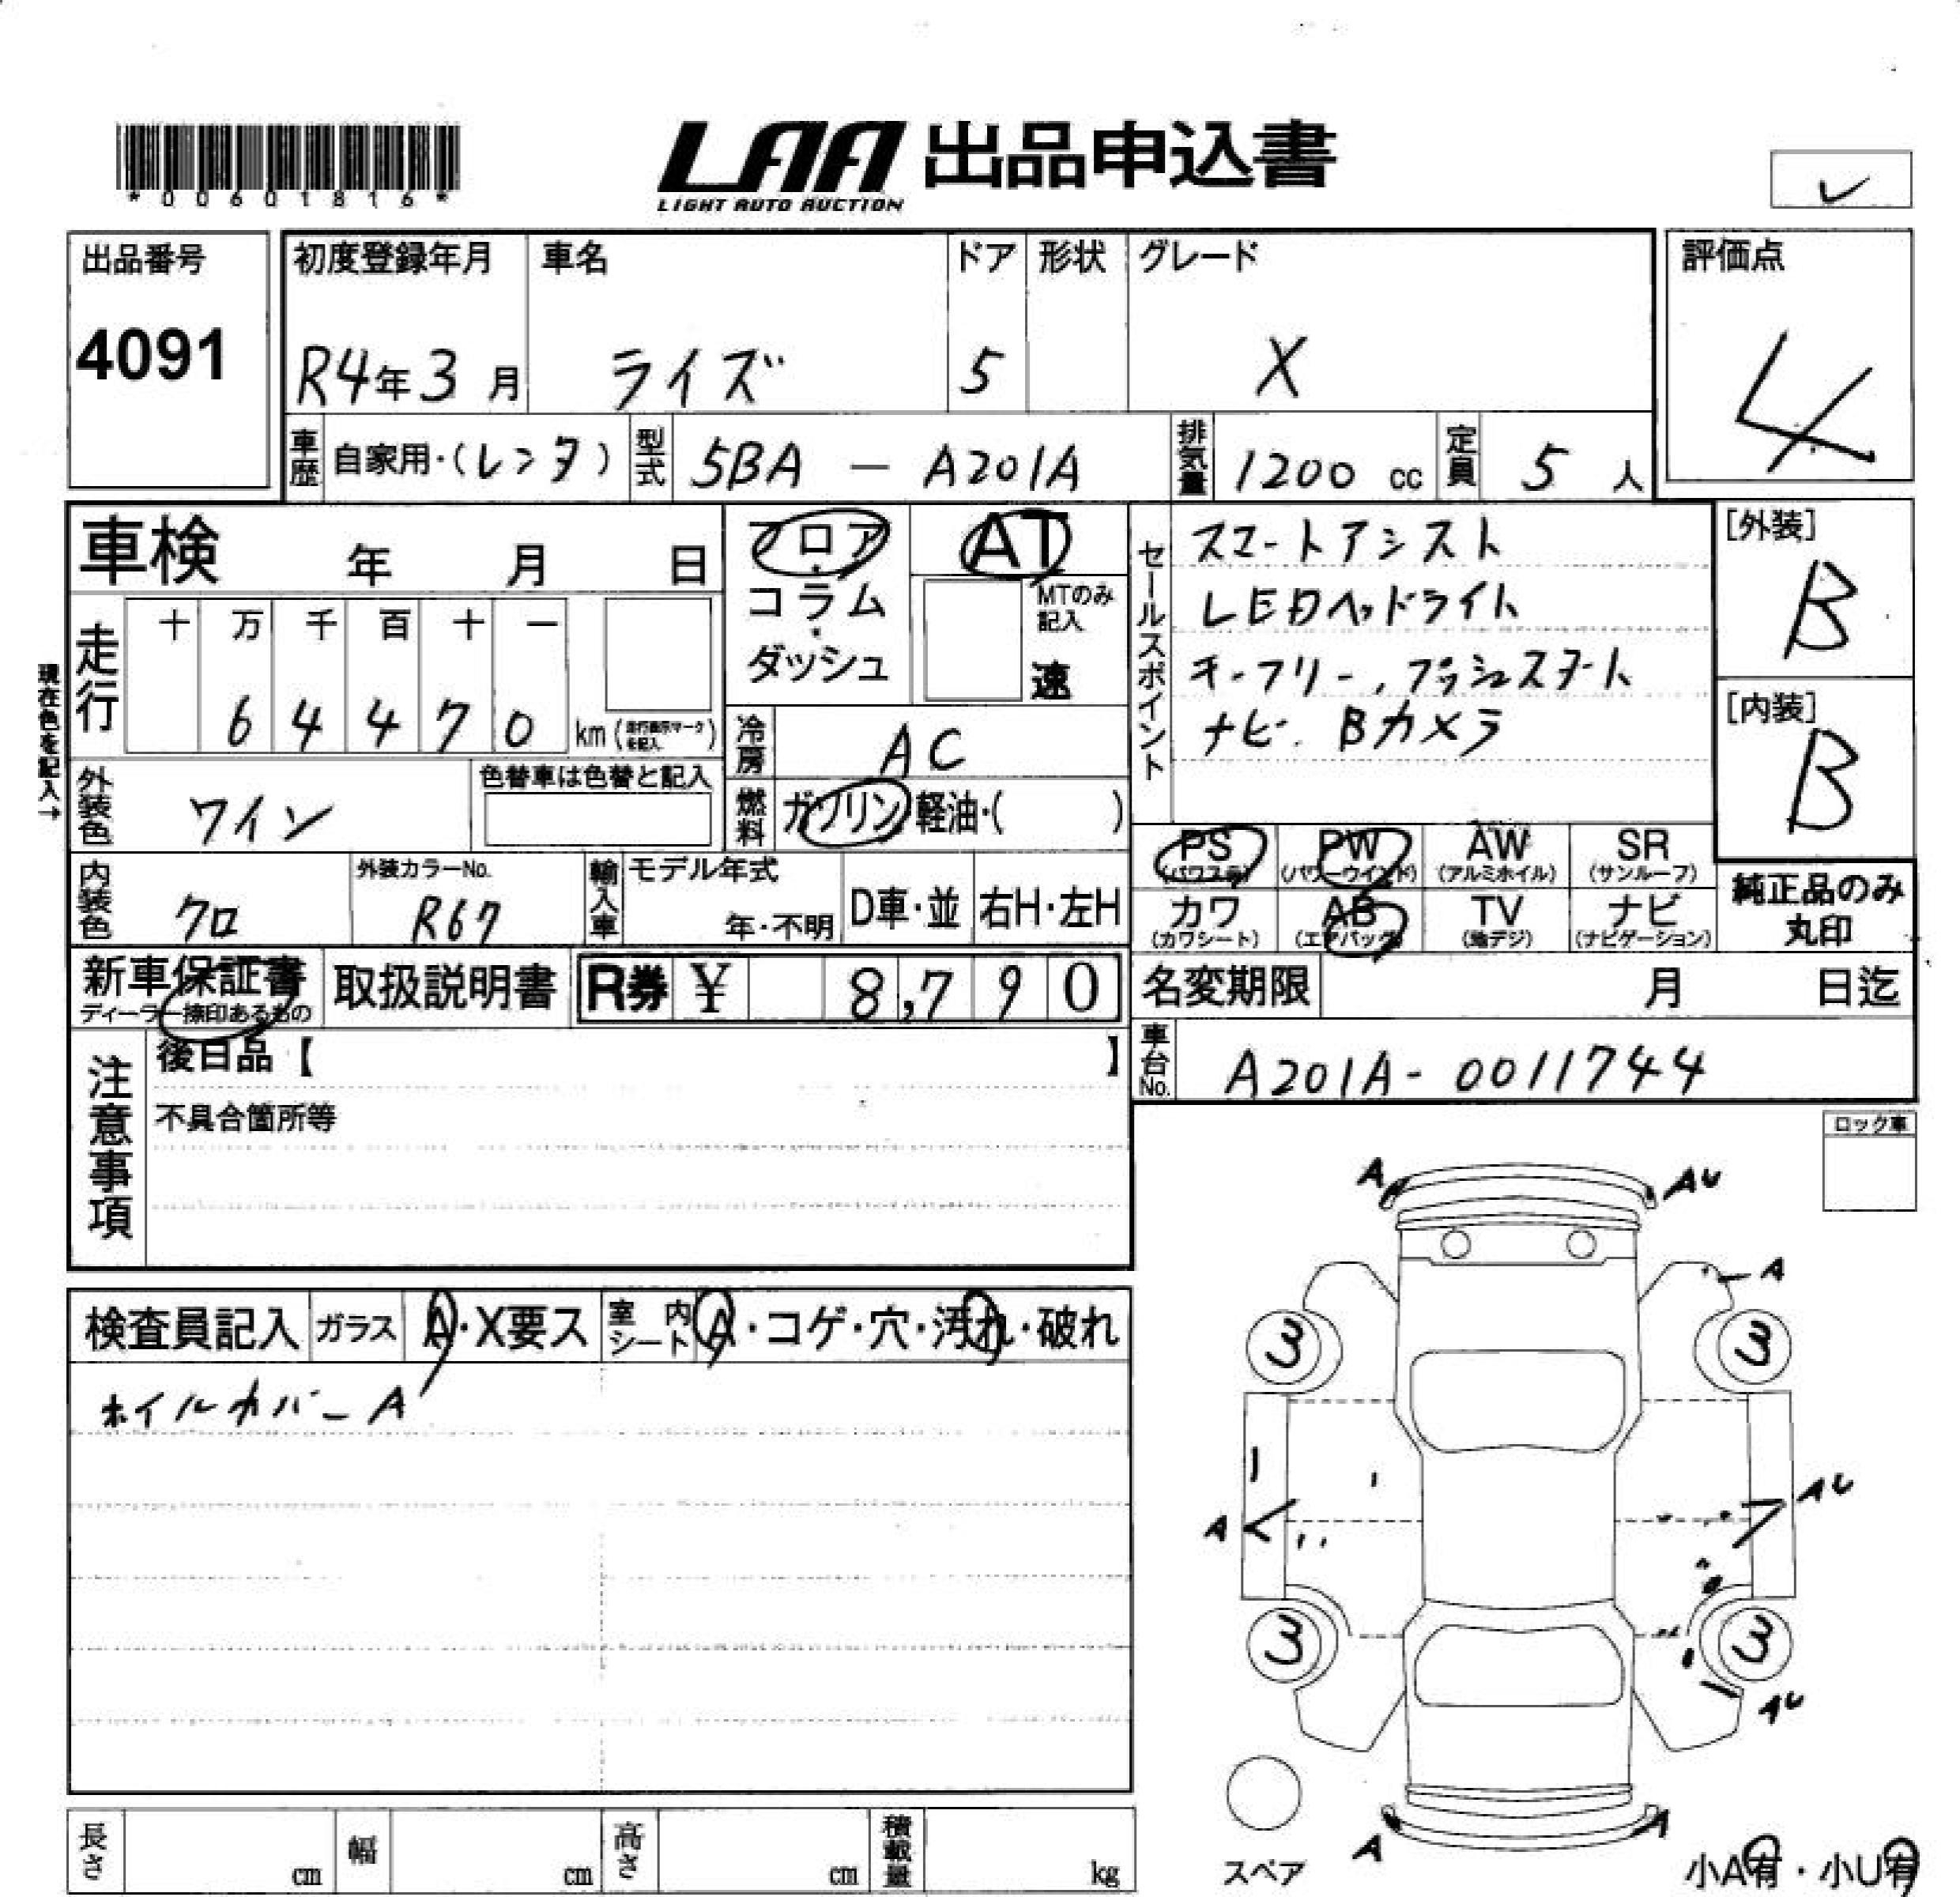 *00601816*
LAA 出品申込書
LIGHT AUTO AUCTION
レ
出品番号
4091
初度登録年月
R4年3月
車名
ライズ
ドア
5
形状
グレード
X
評価点
4
車歴 自家用・(レンタ)
型式 5BA － A201A
排気量 1200 cc
定員 5 人
車検 年 月 日
フロア・
コラム・
ダッシュ
AT
MTのみ記入
速
セールスポイント
スマートアシスト
LEDヘッドライト
キーフリー、プッシュスタート
ナビ、Bカメラ
[外装]
B
[内装]
B
現在色を記入→
走行
十 万 千 百 十 一
6 4 4 7 0 km
冷房 AC
燃料 ガソリン・軽油・( )
外装色 ワイン
色替車は色替と記入
内装色 クロ
外装カラーNo.
R67
輸入車 モデル年式
年・不明
D車・並
右H・左H
PS (パワステ)
PW (パワーウインド)
AW (アルミホイル)
SR (サンルーフ)
カワ (カワシート)
AB (エアバッグ)
TV (地デジ)
ナビ (ナビゲーション)
純正品のみ
丸印
新車保証書
ディーラー捺印あるもの
取扱説明書
R券 ¥ 8,790
名変期限 月 日迄
注意事項
後日品【 】
不具合箇所等
車台No. A201A-0011744
ロック車
検査員記入
ガラス A・X要ス
室内シート A・コゲ・穴・汚れ・破れ
ホイルカバーA
A
AU
A
3
3
A
AU
3
3
AU
A
A
スペア
小A有・小U有
長さ cm
幅 cm
高さ cm
積載量 kg